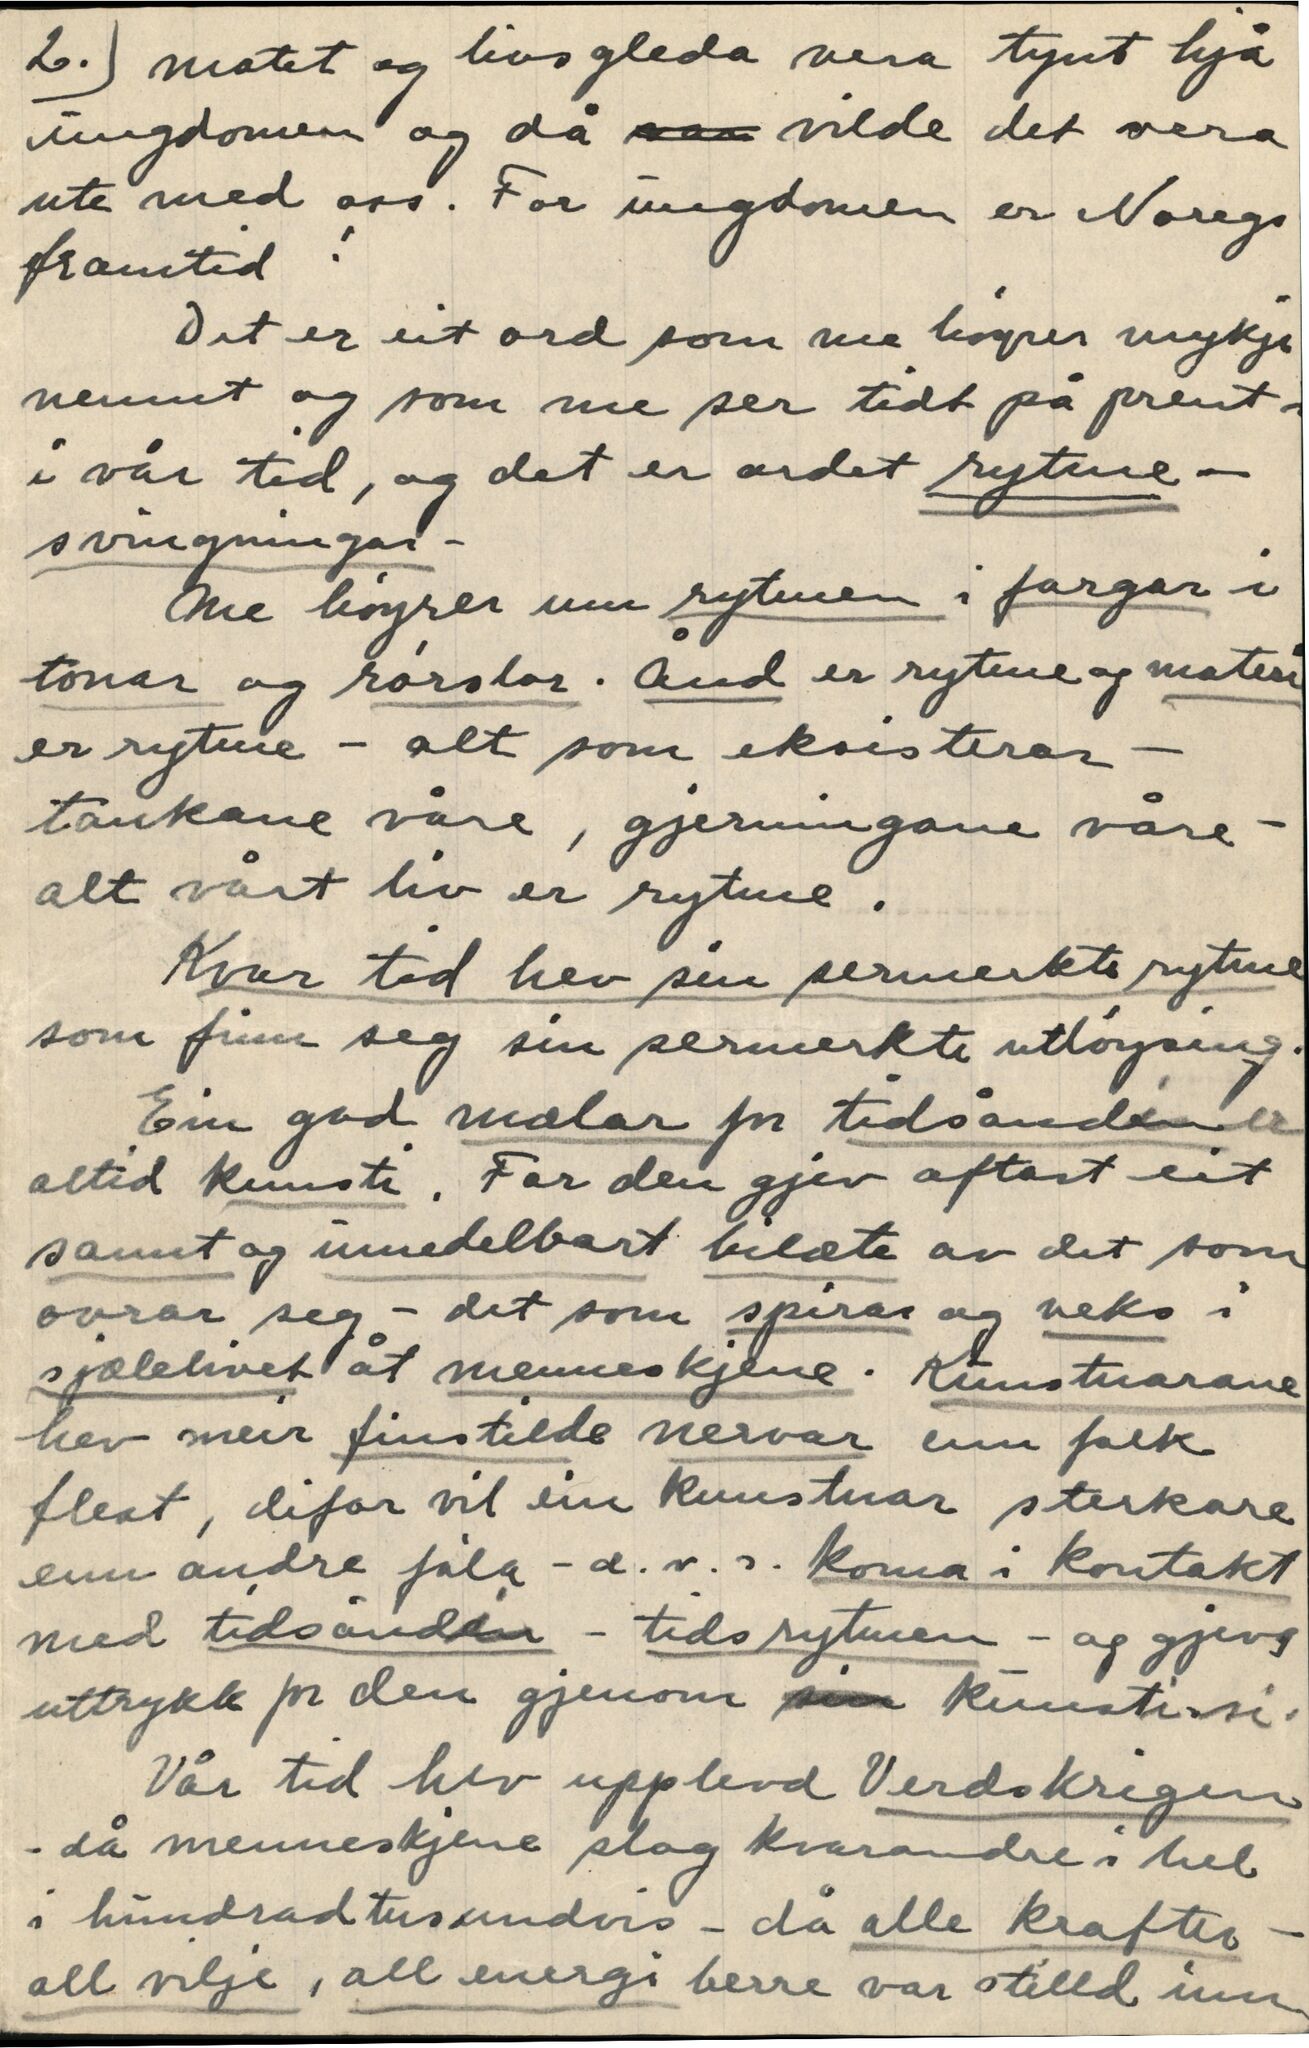 2.) motet og livsgleda vera tynt hjå
ungdomen og då vilde det vera
ute med oss. For ungdomen er Noregs
framtid!
Det er eit ord som me höyrer mykje
nemnt og som me ser tidt på prent -
i vår tid, og det er ordet rytme -
svingningar -
Me höyrer um rytmen i fargar i
tonar og rörslor. Ånd er rytme og materi
er rytme - alt som eksisterar -
tankane våre, gjerningane våre -
alt vårt liv er rytme.
Kvar tid hev sin sermerkte rytme
som finn seg sin sermerkte utlöysing.
Ein god mælar for tidsånden er
altid kunsti. For den gjev oftast eit
samt og umedelbart bilæte av det som
ovrar seg - det som spirar og veks i
sjælelivet åt menneskjene. Kunstnarane
hev meir finstilde nervar enn folk
flest, difor vil ein kunstnar sterkare
enn andre föla - d.v.s. koma i kontakt
med tidsånden - tidsrytmen - og gjeva
uttrykk for den gjenom sin kunsti si.
Vår tid hev upplevd Verdskrigen
- då menneskjene slog kvarandre i hel
i hundradtusundvis - då alle krafter -
all vilje, all energi berre var stilld inn